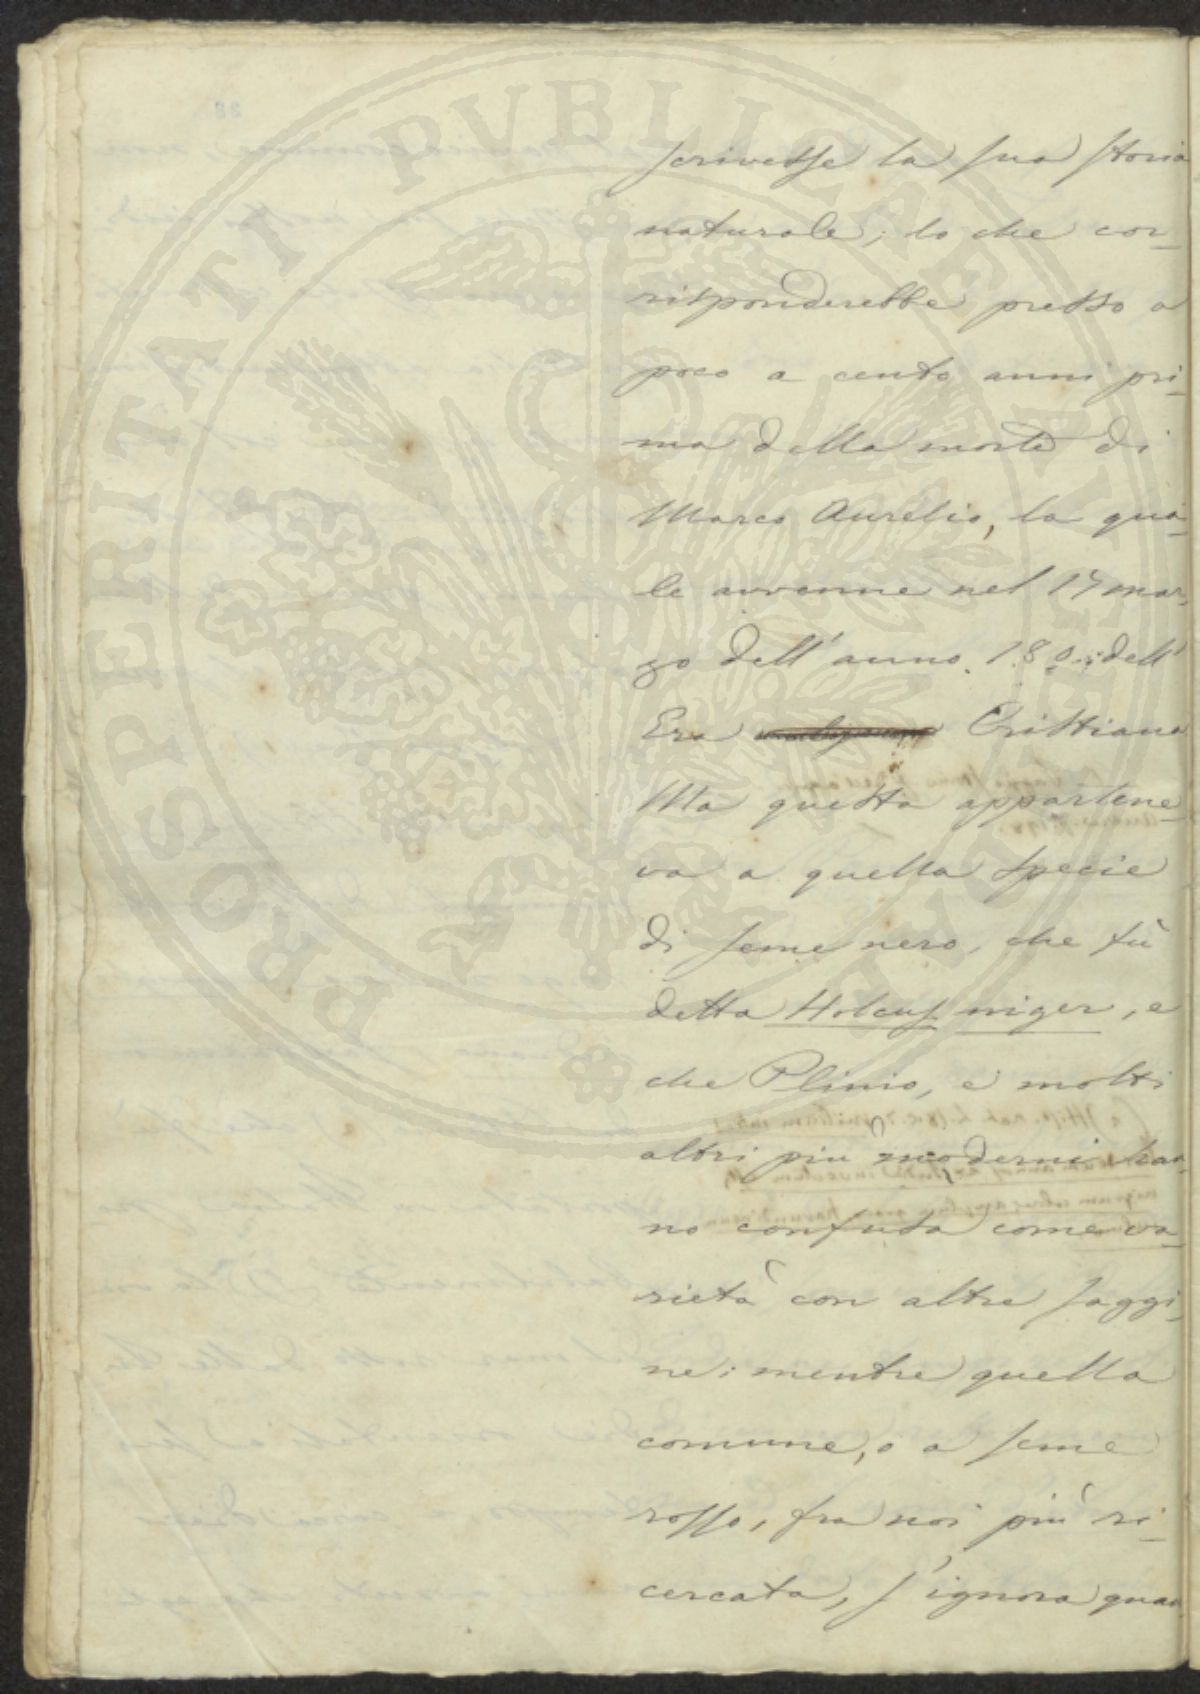 PROSPERITATI PVBLICAE
scrivesse la sua storia
naturale; lo che cor-
risponderebbe presso a
poco a cento anni pri-
ma della morte di
Marco Aurelio, la qua-
le avvenne nel 17 mar-
zo dell'anno 180 dell'
Era Cristiana
Ma questa appartene-
va a quella specie
di seme nero, che fù
detta Holcus niger, e
che Plinio, e molti
altri più moderni han-
no confusa come va-
rietà con altre saggi-
ne; mentre quella
comune, o a seme
rosso, fra noi più ri-
cercata, s'ignora quan